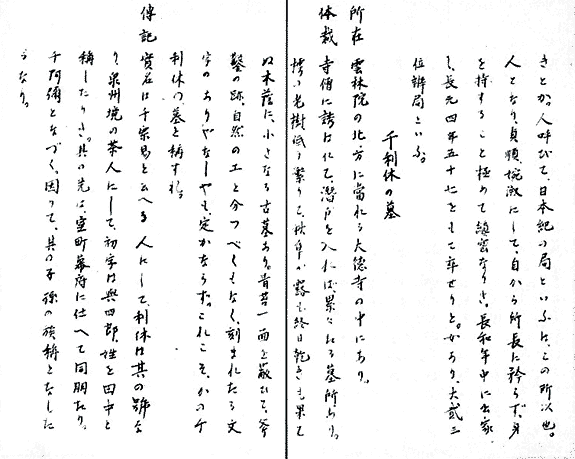 きとか。人呼びて、日本紀の局といふは、この所以也。
人となり、貞順、婉淑にして、自から所長に矜らず、身
を持すること極めて謹密なりき。長和年中に出家
し、長元四年五十七をもて卒せりと。かあり、大弐三
位辨局といふ。
千利休の墓
所在 雲林院の北方に當れる大徳寺の中にあり。
体裁 寺僧に請は化て、潜戸を入れば累々たる墓所あり。
老樹低う繁りて、 露も終日乾きも果て
ぬ木蔭に、小さなる古墓あり。青苔一面を蔽ひて、斧
鑿の跡、自然の工と分つべくもなく、刻まれたる文
字のありやなしやも、定かならず。これこそ、かの千
利休の墓と称すれ。
傳記 實名は千宗易と云へる人にして、利休は其の號な
り、泉州境の茶人にして、初字は與四郎、姓を田中と
称したりき。其の先は、室町幕府に仕へて同朋たり。
千阿彌となづく。因りて、其の子孫の族稱となした
るなり。